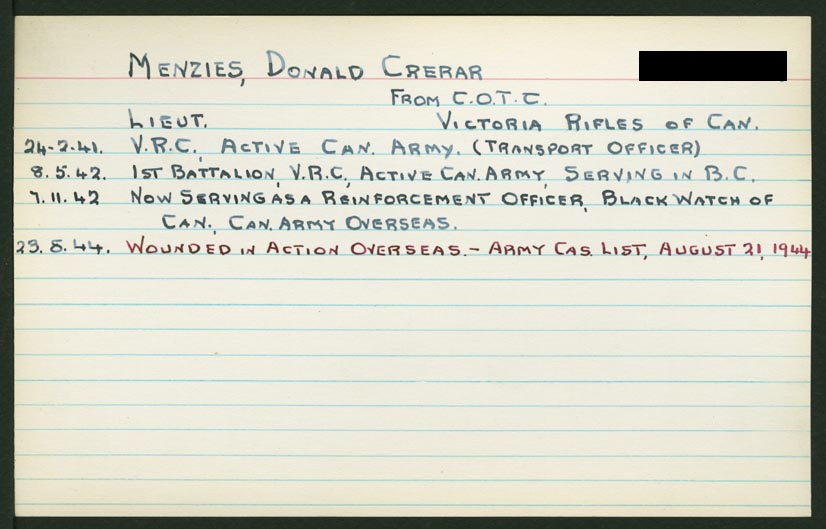 MENZIES, DONALD CRERAR
FROM C.O.T.C.
LIEUT. VICTORIA RIFLES OF CAN.
24-2-41. V.R.C. ACTIVE CAN. ARMY. (TRANSPORT OFFICER)
8.5.42. 1ST BATTALION, V.R.C, ACTIVE CAN. ARMY, SERVING IN B.C.
7.11.42 NOW SERVING AS A REINFORCEMENT OFFICER, BLACK WATCH OF
CAN., CAN. ARMY OVERSEAS.
23.8.44. WOUNDED IN ACTION OVERSEAS. - ARMY CAS. LIST, AUGUST 21, 1944